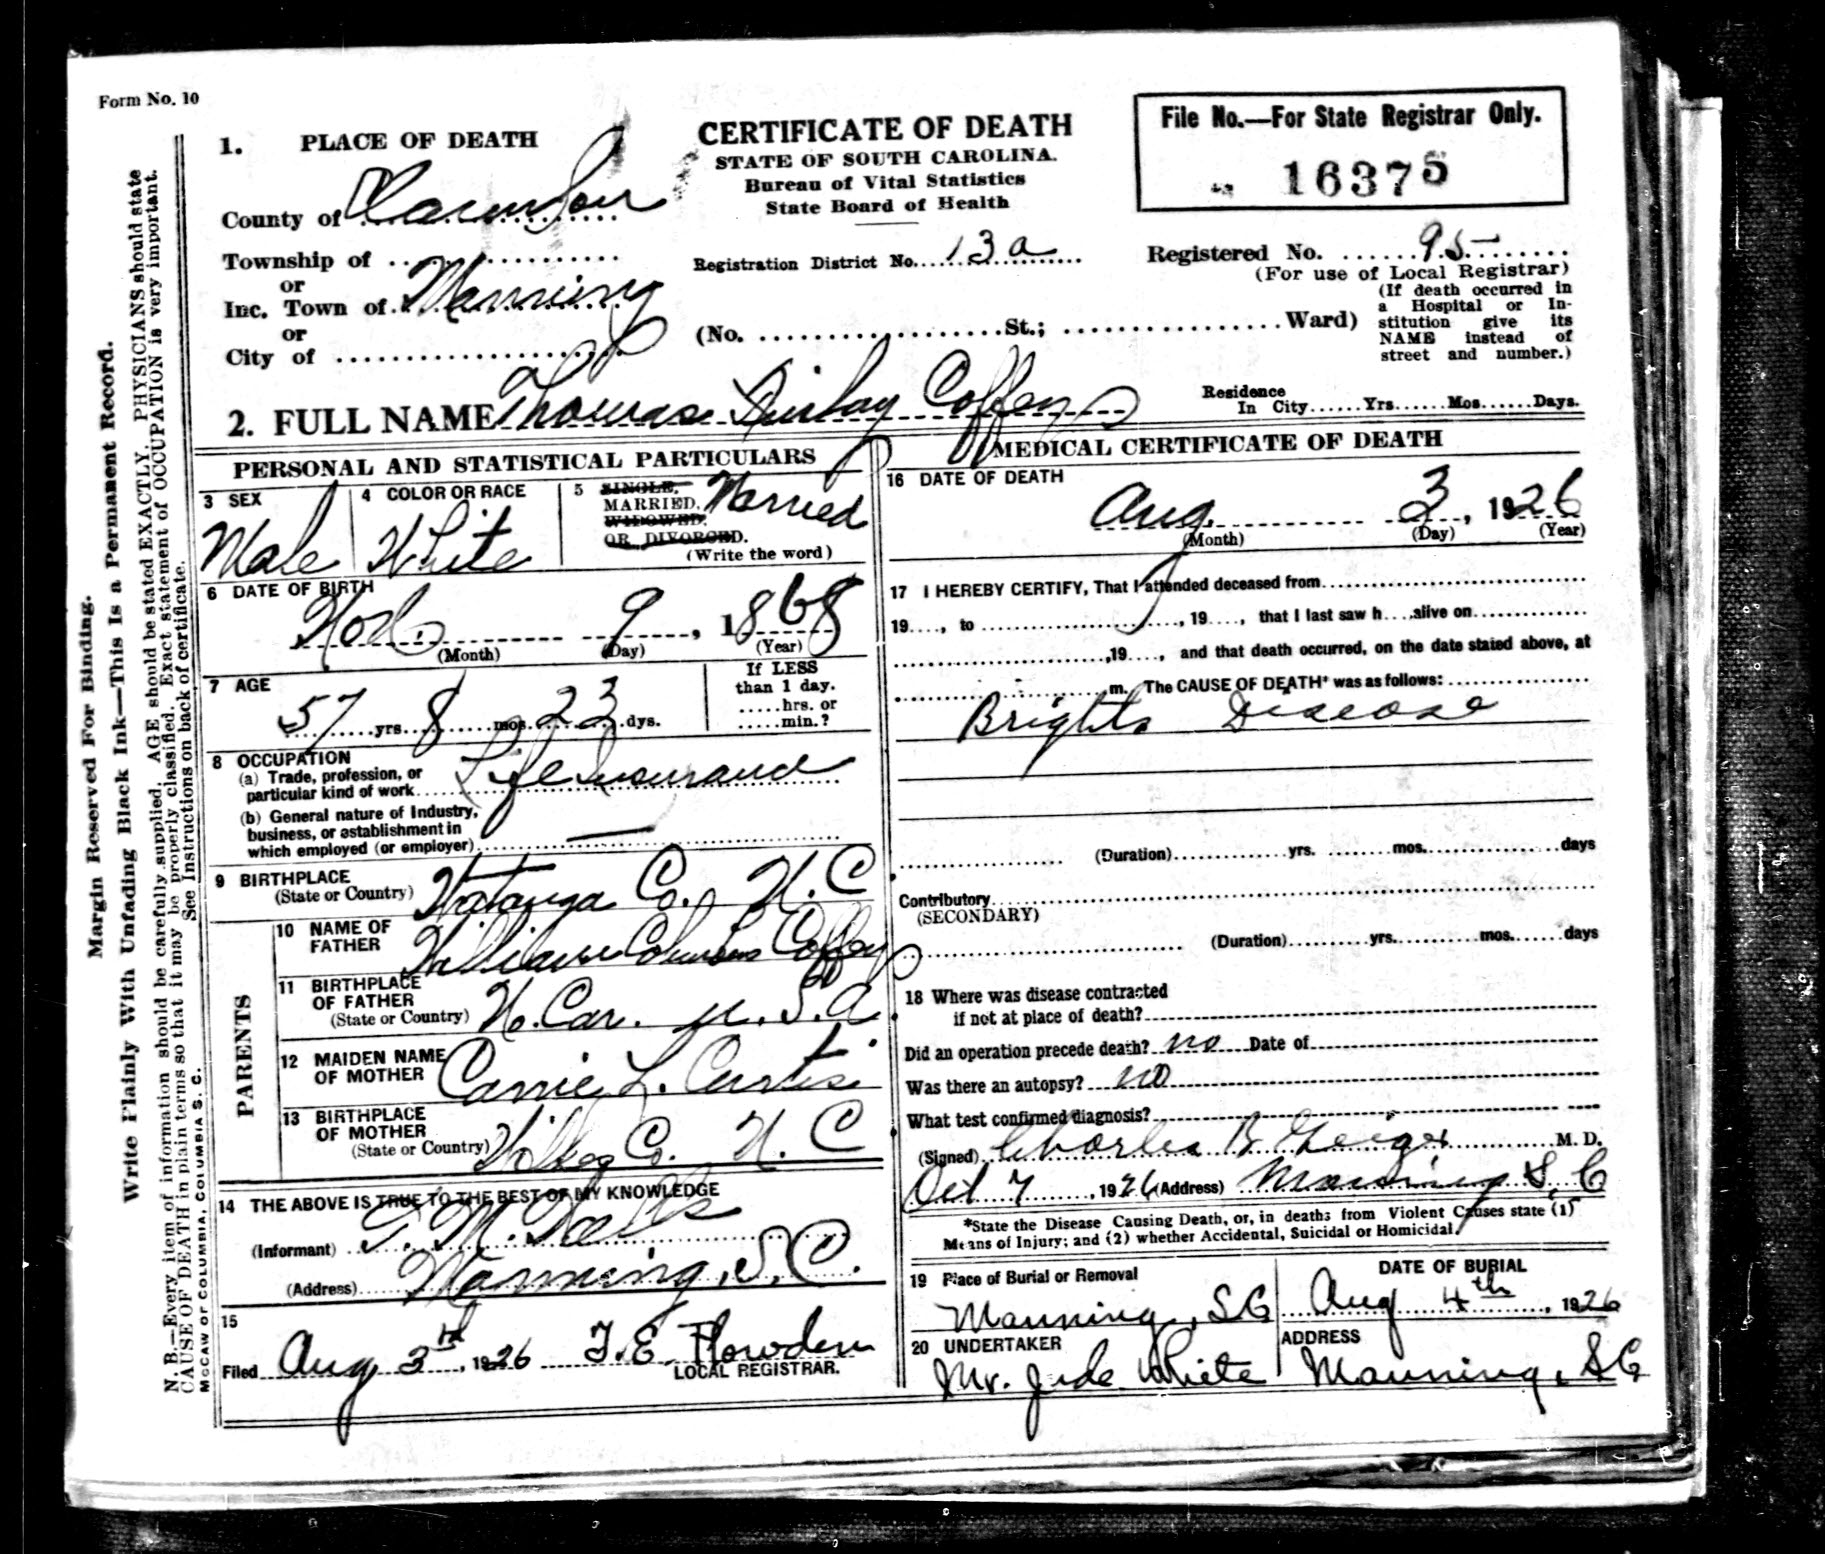 Form No. 10
Margin Reserved For Binding.
Write Plainly With Unfading Black Ink—This Is a Permanent Record.
N. B.—Every item of information should be carefully supplied. AGE should be stated EXACTLY. PHYSICIANS should state
CAUSE OF DEATH in plain terms so that it may be properly classified. Exact statement of OCCUPATION is very important.
See Instructions on back of certificate.
McCAW OF COLUMBIA, COLUMBIA S. C.
CERTIFICATE OF DEATH
STATE OF SOUTH CAROLINA.
Bureau of Vital Statistics
State Board of Health
File No.—For State Registrar Only.
16375
1. PLACE OF DEATH
County of Clarendon
Township of
or
Inc. Town of Manning
or
City of
Registration District No. 13a
Registered No. 95
(For use of Local Registrar)
(No. St.; Ward)
(If death occurred in
a Hospital or In-
stitution give its
NAME instead of
street and number.)
2. FULL NAME Thomas Coffey
Residence
In City Yrs. Mos. Days.
PERSONAL AND STATISTICAL PARTICULARS
3 SEX
Male
4 COLOR OR RACE
White
5 SINGLE,
MARRIED, Married
WIDOWED,
OR DIVORCED.
(Write the word)
6 DATE OF BIRTH
Nov. 9, 1868
(Month) (Day) (Year)
7 AGE
57 yrs. 8 mos. 23 dys.
If LESS
than 1 day.
hrs. or
min.?
8 OCCUPATION
(a) Trade, profession, or
particular kind of work Life Insurance
(b) General nature of Industry,
business, or establishment in
which employed (or employer) —
9 BIRTHPLACE
(State or Country) Watauga Co., N. C.
PARENTS
10 NAME OF
FATHER William Columbus Coffey
11 BIRTHPLACE
OF FATHER
(State or Country) N. Car. U. S. A.
12 MAIDEN NAME
OF MOTHER Carrie L. Curtis
13 BIRTHPLACE
OF MOTHER
(State or Country) Wilkes Co. N. C
14 THE ABOVE IS TRUE TO THE BEST OF MY KNOWLEDGE
(Informant) T. M. Wells
(Address) Manning, S. C.
15
Filed Aug 3rd, 1926 T. E. Flowden
LOCAL REGISTRAR.
MEDICAL CERTIFICATE OF DEATH
16 DATE OF DEATH
Aug. 3, 1926
(Month) (Day) (Year)
17 I HEREBY CERTIFY, That I attended deceased from
19 , to , 19 , that I last saw h alive on
,19 , and that death occurred, on the date stated above, at
m. The CAUSE OF DEATH* was as follows:
Brights Disease
(Duration) yrs. mos. days
Contributory
(SECONDARY)
(Duration) yrs. mos. days
18 Where was disease contracted
if not at place of death?
Did an operation precede death? no Date of
Was there an autopsy? no
What test confirmed diagnosis?
(Signed) Charles B. Geiger M. D.
Oct 7, 1926 (Address) Manning S. C
*State the Disease Causing Death, or, in deaths from Violent Causes state (1)
Means of Injury; and (2) whether Accidental, Suicidal or Homicidal.
19 Place of Burial or Removal
Manning, S C
DATE OF BURIAL
Aug 4th, 1926
20 UNDERTAKER
Mr. Jude White
ADDRESS
Manning, S C